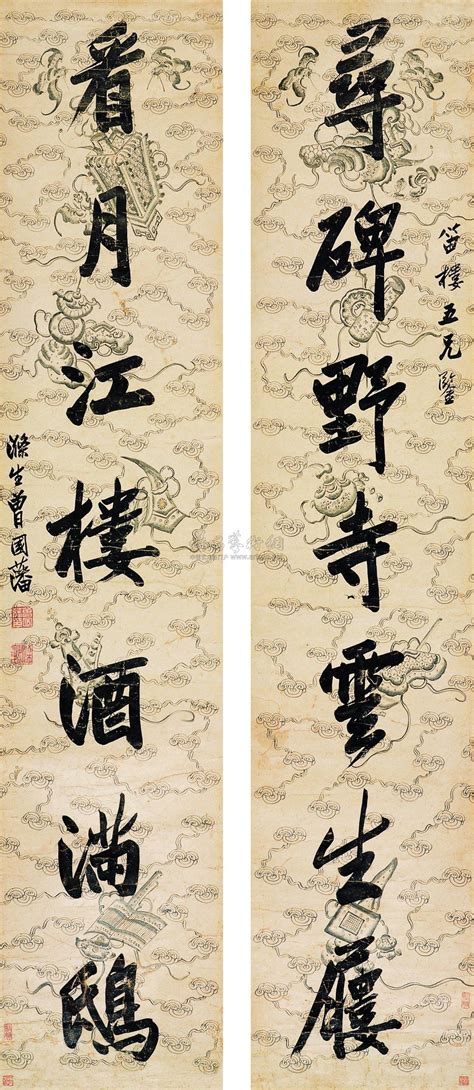 尋碑野寺雲生屨
笛樓五兄鑒
看月江樓酒滿鴟
滌生曾國藩